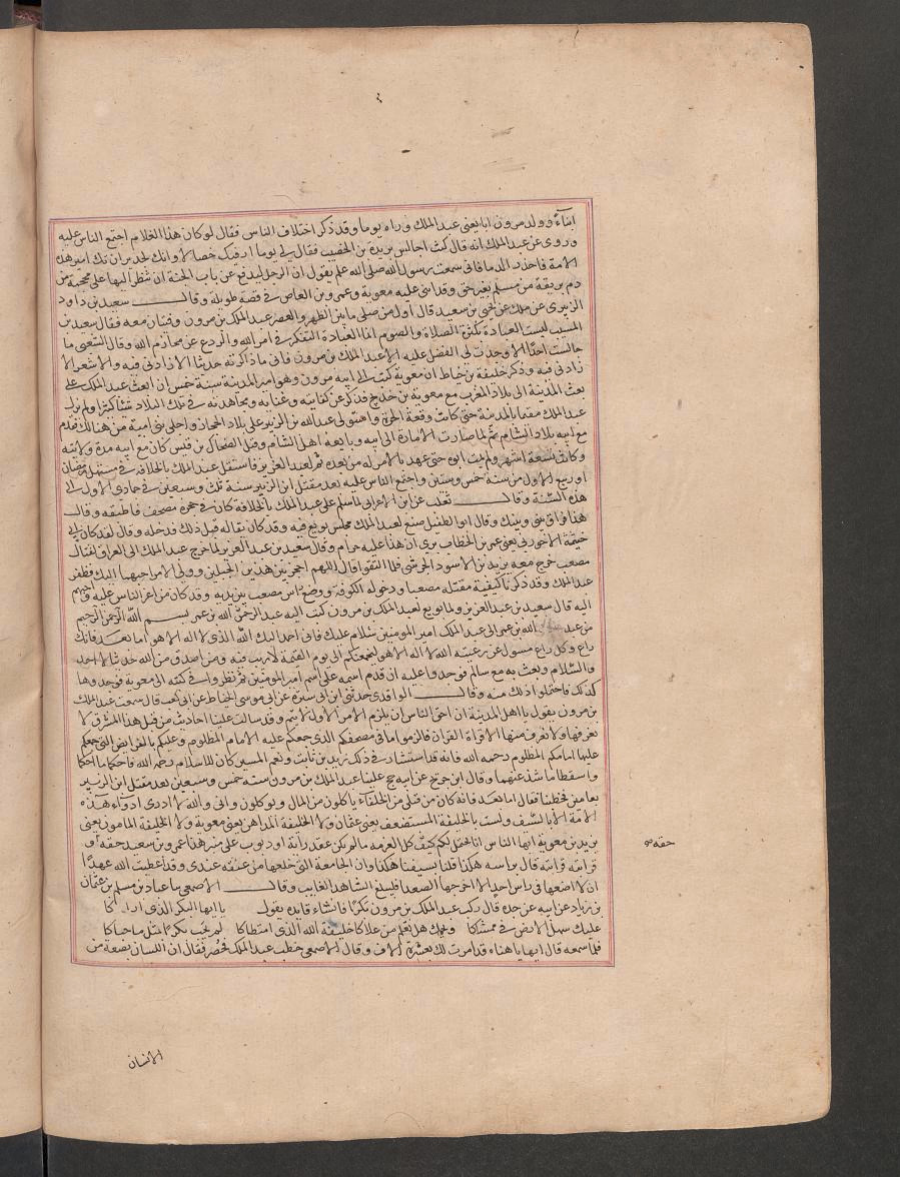 ابناء وولد مرون ابا يعنى عبد الملك وراه يوما وقد ذكر اختلاف الناس فقال لو كان هذا الغلام اجتمع الناس عليه
وروى عن عبد الملك انه قال كنت اجالس بريدة بن الحصيب فقال لي يوما ارى فيك خصالا وانك لجدير ان تلى امر هذه
الامة فاحذر الدما فانى سمعت رسول الله صلى الله علم يقول ان الرجل ليدفع عن باب الجنة ان ينظر اليها على محجمة من
دم يريقه من مسلم بغير حق وقد اثنى عليه معوية وعمرو بن العاص في قصة طويلة وقال سعيد بن داود
الزبيرى عن ملك عن يحيى بن سعيد قال اول من صلى ما بين الظهر والعصر عبد الملك بن مرون وفتيان معه فقال سعيد بن
المسيب ليست العبادة بكثرة الصلاة والصوم انما العبادة التفكر في امر الله والورع عن محارم الله وقال الشعبى ما
جالست احدا الا وجدت لى الفضل عليه الا عبد الملك بن مرون فانى ما ذاكرته حديثا الا زادنى فيه ولا شعرا الا
زادنى فيه وذكر خليفة بن خياط ان معوية كتب الى ابنه مرون وهو امير المدينة سنة خمس ان ابعث عبد الملك على
بعث المدينة الى بلاد المغرب مع معوية بن خديج فذكر عن كفايته وغنايه ومجاهدته في تلك البلاد شئا كثيرا ولم يزل
عبد الملك مقيما بالمدينة حتى كانت وقعة الحرة واستولى عبد الله بن الزبير على بلاد الحجاز واجلى بنى امية من هنالك فقدم
مع ابيه بلاد الشام ثم لما صارت الامارة الى ابيه وبايعه اهل الشام وقتل الضحاك بن قيس كان مع ابيه مدة ولايته
وكانت تسعة اشهر ولم يمت ابوه حتى عهد بالامر له من بعده ثم لعبد العزيز فاستقل عبد الملك بالخلافة في مستهل رمضان
او ربيع الاول من سنة خمس وستين واجتمع الناس عليه بعد مقتل ابن الزبير سنة ثلث وسبعين في جمادى الاول الى
هذه السنة وقال ثعلب عن ابن الاعرابى لما سلم على عبد الملك بالخلافة كان في حجره مصحف فاطبقه وقال
هذا فراق بينى وبينك وقال ابو الطفيل صنع لعبد الملك مجلس بويع فيه وقد كان بناله قبل ذلك فدخله وقال لقد كان يرى
حنيفة الاحوزى يعنى عمر بن الخطاب يرى ان هذا عليه حرام وقال سعيد بن عبد العزيز لما خرج عبد الملك الى العراق لقتال
مصعب خرج معه يزيد بن الاسود الجرشى فلما التقوا قال اللهم احجز بين هذين الجبلين وول الامر احبهما اليك فظفر
عبد الملك وقد ذكرنا كيفية مقتله مصعبا ودخوله الكوفة ووضع راس مصعب بين يديه وقد كان من اعز الناس عليه
اليه قال سعيد بن عبد العزيز ولما بويع لعبد الملك بن مرون كتب اليه عبد الرحمن الله بن عمر بسم الله الرحمن الرحيم
من عبد الله بن عمر الى عبد الملك امير المومنين سلام عليك فانى احمد اليك الله الذى لا اله الا هو اما بعد فانك
راع وكل راع مسول عن رعيته الله لا اله الا هو ليجمعنكم الى يوم القيمة لا ريب فيه ومن اصدق من الله حديثا لا احد
والسلام وبعث به مع سالم فوجدوا عليه ان قدم اسمه على اسم امير المومنين ثم نظروا في كتبه الى معوية فوجدوها
كذلك فاحتملوا ذلك منه وقال الواقدى حدثنى ابن ابى سبرة عن ابى موسى الخياط عن ابى كعب قال سمعت عبد الملك
بن مرون يقول يا اهل المدينة ان احق الناس ان يلزم الامر الاول لانتم وقد سالت علينا احاديث من قبل هذا المشرق لا
نعرفها ولا نعرف منها الا قراة القران فالزموا ما فى مصحفكم الذى جمعكم عليه الامام المظلوم وعليكم بالفرايض التى جمعكم
عليها امامكم المظلوم رحمه الله فانه قد استشار في ذلك زيد بن ثابت ونعم المسير كان للاسلام رحمه الله فاحكما ما احكما
واسقطا ما شذ عنهما وقال ابن جريج عن ابيه حج علينا عبد الملك بن مرون سنة خمس وسبعين بعد مقتل ابن الزبير
بعامين فخطبنا فقال اما بعد فانه كان من قبلى من الخلفاء ياكلون من المال ويوكلون وانى والله لا ادرى ادواء هذه
الامة الا بالسيف ولست بالخليفة المستضعف يعنى عثمان ولا الخليفة المداهن يعنى معوية ولا الخليفة المامون يعنى
يزيد بن معوية ايها الناس انا نحتمل لكم كل الغرمه مالم يكن عقد راية او ثوب على منبر هذا عمرو بن سعيد حقه و
قرابته قرابته قال براسه هكذا قلنا بسيفنا هكذا وان الجامعة التى خلعها من عنقه عندى وقد اعطيت الله عهدا
ان لا اضعها فى راس احد الا اخرجها الصعدا فليبلغ الشاهد الغايب وقال الاصمعى ثنا عباد بن مسلم بن عثمان
بن زياد عن ابيه عن جده قال ركب عبد الملك بن مرون بكرا فانشاء قايده يقول يا ايها البكر الذى اراكا
عليك سهل الارض في ممشاكا ويحك هل تعلم من علاكا خليفة الله الذى امتطاكا لم يحب بكرا مثل ما حباكا
فلما سمعه قال ايها يا هناه قد امرت لك بعشرة الاف وقال الاصمعى خطب عبد الملك فحصر فقال ان اللسان بضعة من
حقه
الانسان